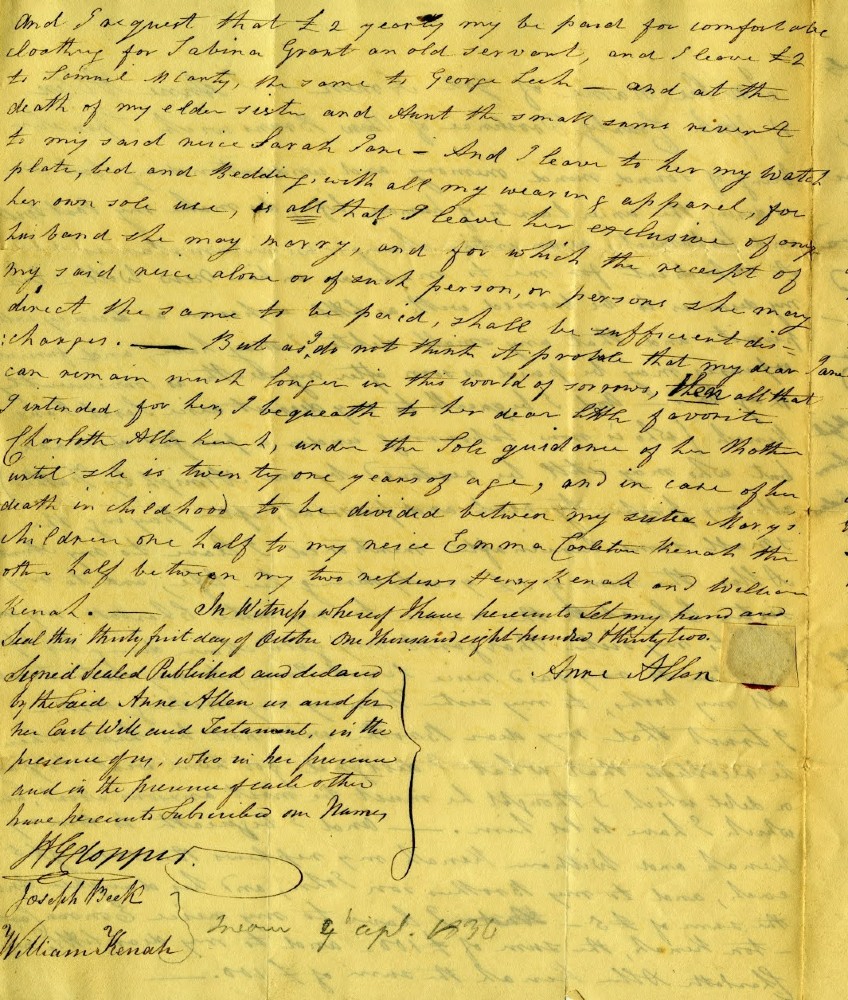 And I request that £2 yearly my be paid for comfortable
cloathing for Sabina Grant an old servant, and I leave £2
to Samuel McCarty, the same to George Leek — and at the
death of my elder sister and Aunt the small sums rivert
to my said neice Sarah Jane — And I leave to her my Watch
plate, bed and Bedding, with all my wearing apparel, for
her own sole use, is all that I leave her exclusive of any
husband she may marry, and for which the receipt of
my said neice alone or of such person, or persons she may
direct the same to be paid, shall be sufficient dis-
:charges. — But as I do not think it probale that my dear Jane
can remain much longer in this world of sorrows, then all that
I intended for her, I bequeath to her dear little favorite
Charlotte Allen Kenah, under the Sole guidance of her Mother
until she is twenty one years of age, and in case of her
death in childhood to be divided between my sister Mary's
children one half to my neice Emma Carleton Kenah the
other half between my two nephews Henry Kenah and William
Kenah. — In Witness whereof I have hereunto Set my hand and
Seal this thirty first day of October One thousand eight hundred & thirty two.
Anne Allen
Signed Sealed Published and declared
by the Said Anne Allen as and for
her Last Will and Testament, in the
presence of us, who in her presence
and in the presence of each other
have hereunto Subscribed our Names
H G Clopper.
Joseph Beek
William Kenah
Sworn 9 apl. 1836